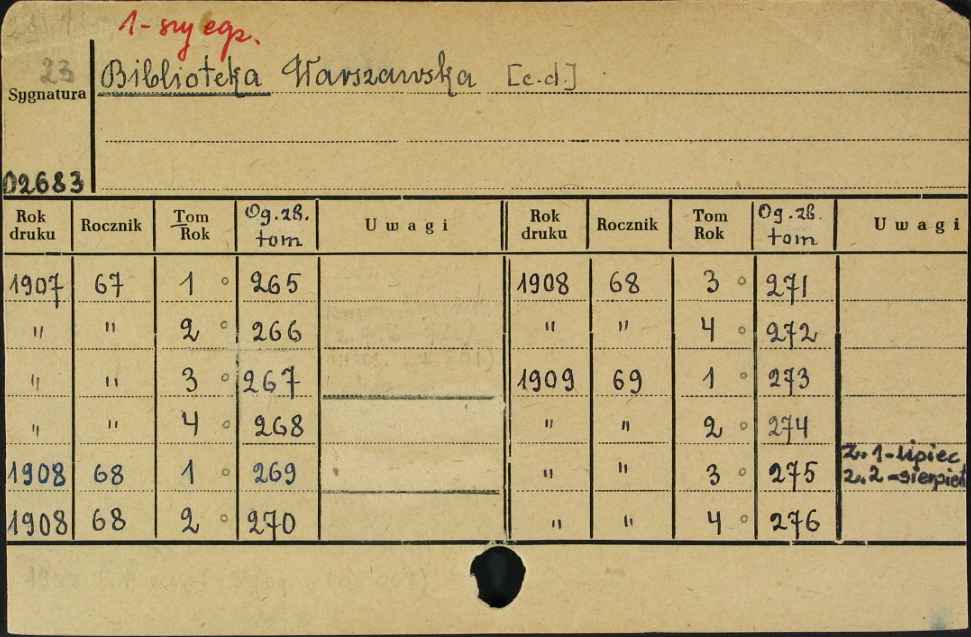 1-szy egz.
23 Biblioteka Warszawska [c.d.]
Sygnatura
02683
Rok druku Rocznik Tom Rok Og.zb. tom Uwagi Rok druku Rocznik Tom Rok Og.zb. tom Uwagi
1907 67 1 265 1908 68 3 271
" " 2 266 " " 4 272
" " 3 267 1909 69 1 273
" " 4 268 " " 2 274
1908 68 1 269 " " 3 275 z. 1-lipiec
z. 2-sierpień
1908 68 2 270 " " 4 276